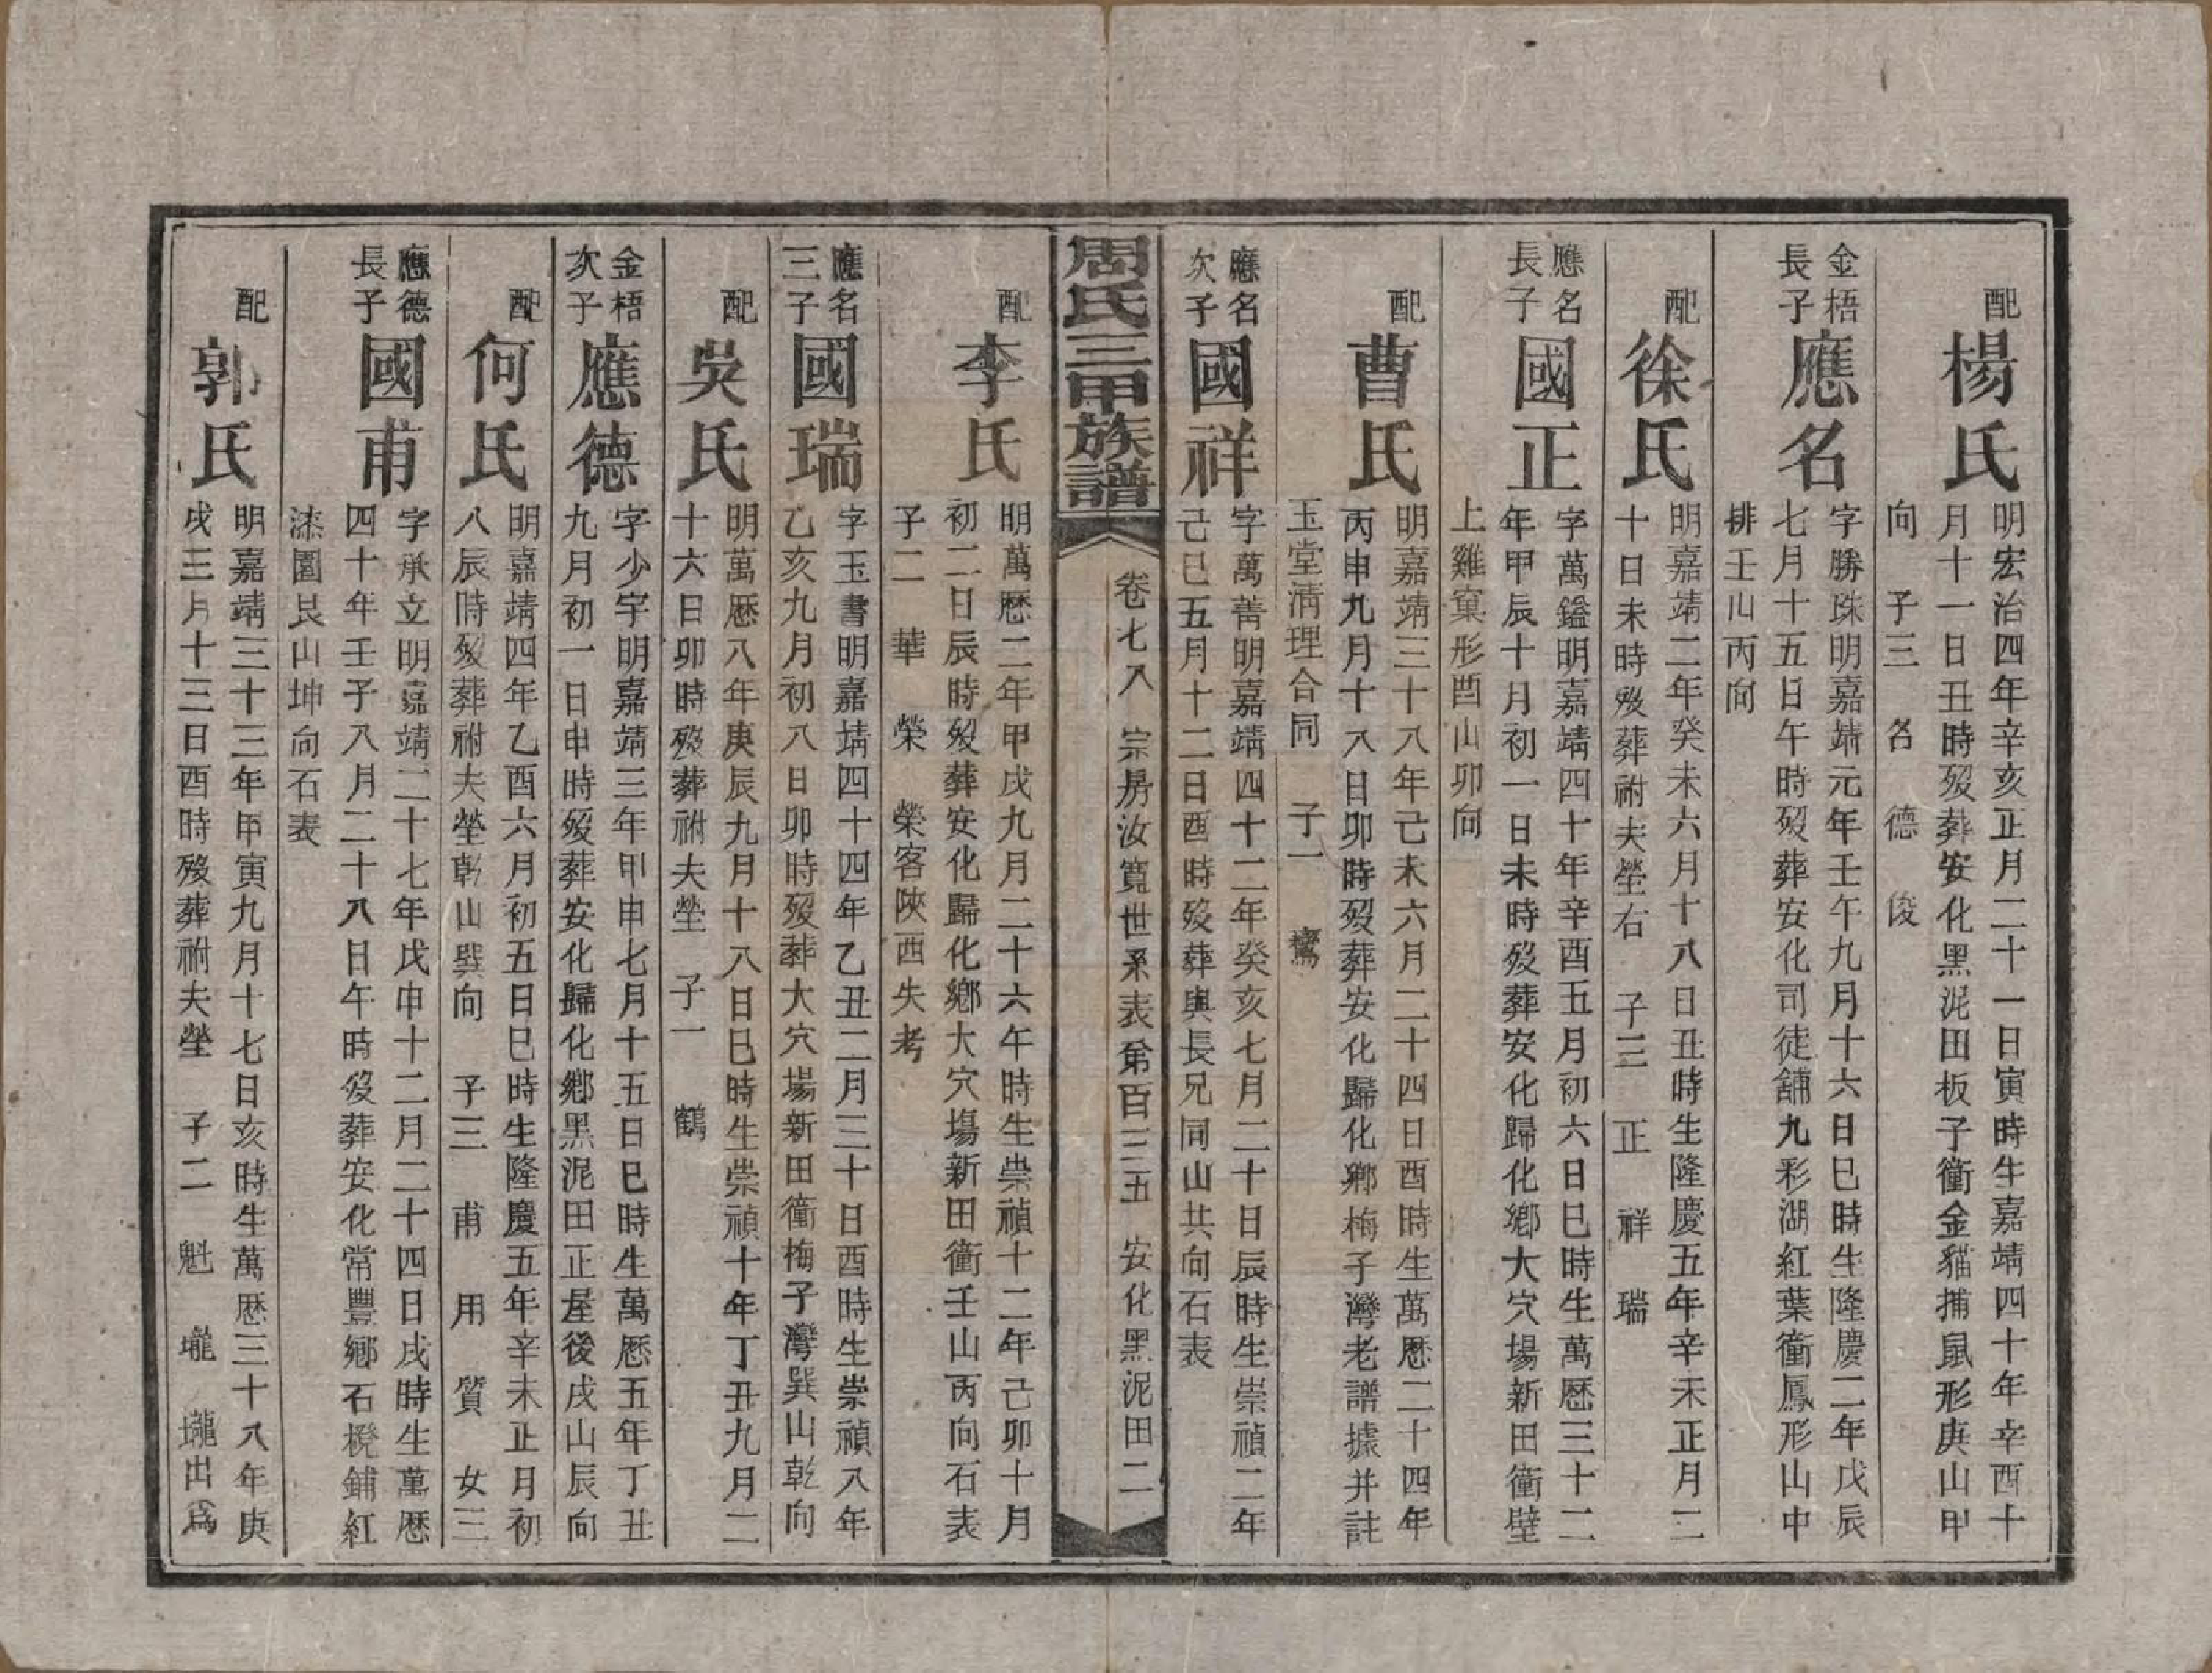 配楊氏明宏治四年辛亥正月二十一日寅時生嘉靖四十年辛酉十
月十一日丑時歿葬安化黑泥田板子衝金貓捕鼠形庚山甲
向 子三 名 德 俊
金梧長子應名字勝珠明嘉靖元年壬午九月十六日巳時生隆慶二年戊辰
七月十五日午時歿葬安化司徒舖九彩湖紅葉衝鳳形山中
排壬山丙向
配徐氏明嘉靖二年癸未六月十八日丑時生隆慶五年辛未正月二
十日未時歿葬祔夫塋右 子三 正 祥 瑞
應名長子國正字萬鎰明嘉靖四十年辛酉五月初六日巳時生萬歷三十二
年甲辰十月初一日未時歿葬安化歸化鄉大穴場新田衝壁
上雞窠形酉山卯向
配曹氏明嘉靖三十八年己未六月二十四日酉時生萬歷二十四年
丙申九月十八日卯時歿葬安化歸化鄉梅子灣老譜據并註
玉堂清理合同 子一 鸞
應名次子國祥字萬菁明嘉靖四十二年癸亥七月二十日辰時生崇禎二年
己巳五月十二日酉時歿葬與長兄同山共向石表
周氏三甲族譜 卷七八 宗房汝寬世系表第百三五 安化黑泥田二
配李氏明萬歷二年甲戌九月二十六午時生崇禎十二年己卯十月
初二日辰時歿葬安化歸化鄉大穴塲新田衝壬山丙向石表
子二 華 榮 榮客陝西失考
應名三子國瑞字玉書明嘉靖四十四年乙丑二月三十日酉時生崇禎八年
乙亥九月初八日卯時歿葬大穴場新田衝梅子灣巽山乾向
配吳氏明萬歷八年庚辰九月十八日巳時生崇禎十年丁丑九月二
十六日卯時歿葬祔夫塋 子一 鶴
金梧次子應德字少宇明嘉靖三年甲申七月十五日巳時生萬歷五年丁丑
九月初一日申時歿葬安化歸化鄉黑泥田正屋後戌山辰向
配何氏明嘉靖四年乙酉六月初五日巳時生隆慶五年辛未正月初
八辰時歿葬祔夫塋乾山巽向 子三 甫 用 質 女三
應德長子國甫字承立明嘉靖二十七年戊申十二月二十四日戌時生萬歷
四十年壬子八月二十八日午時歿葬安化常豐鄉石櫈鋪紅
漆園艮山坤向石表
配郭氏明嘉靖三十三年甲寅九月十七日亥時生萬歷三十八年庚
戌三月十三日酉時歿葬祔夫塋 子二 魁 壠 壠出爲